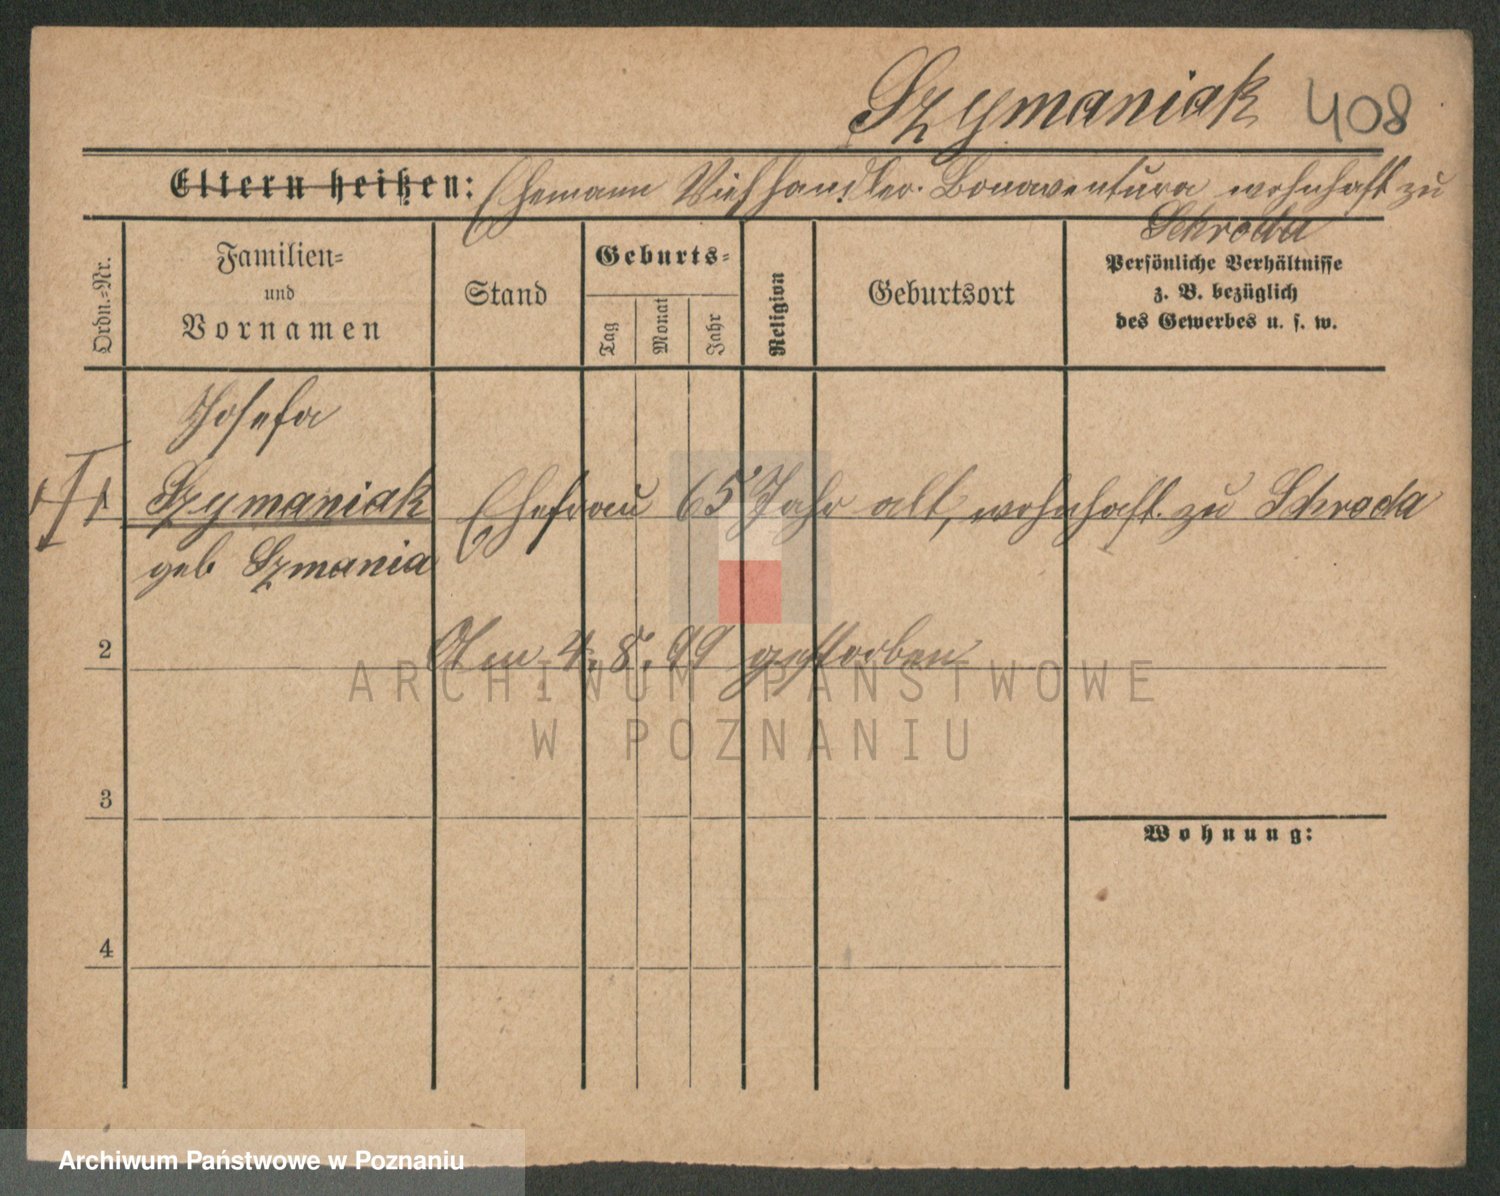 Szymaniak 408
Eltern heißen: Ehemann Viehhändler Bonaventura wohnhaft zu
Schroda
Ordn.=Nr.
Familien=
und
Vornamen
Stand
Geburts=
Tag
Monat
Jahr
Religion
Geburtsort
Persönliche Verhältnisse
z. B. bezüglich
des Gewerbes u. s. w.
Josefa
1 Szymaniak Ehefrau 65 Jahr alt, wohnhaft zu Schroda
geb Szmania
2 Am 4. 8. 99 gestorben
ARCHIWUM PAŃSTWOWE
W POZNANIU
3
Wohnung:
4
Archiwum Państwowe w Poznaniu